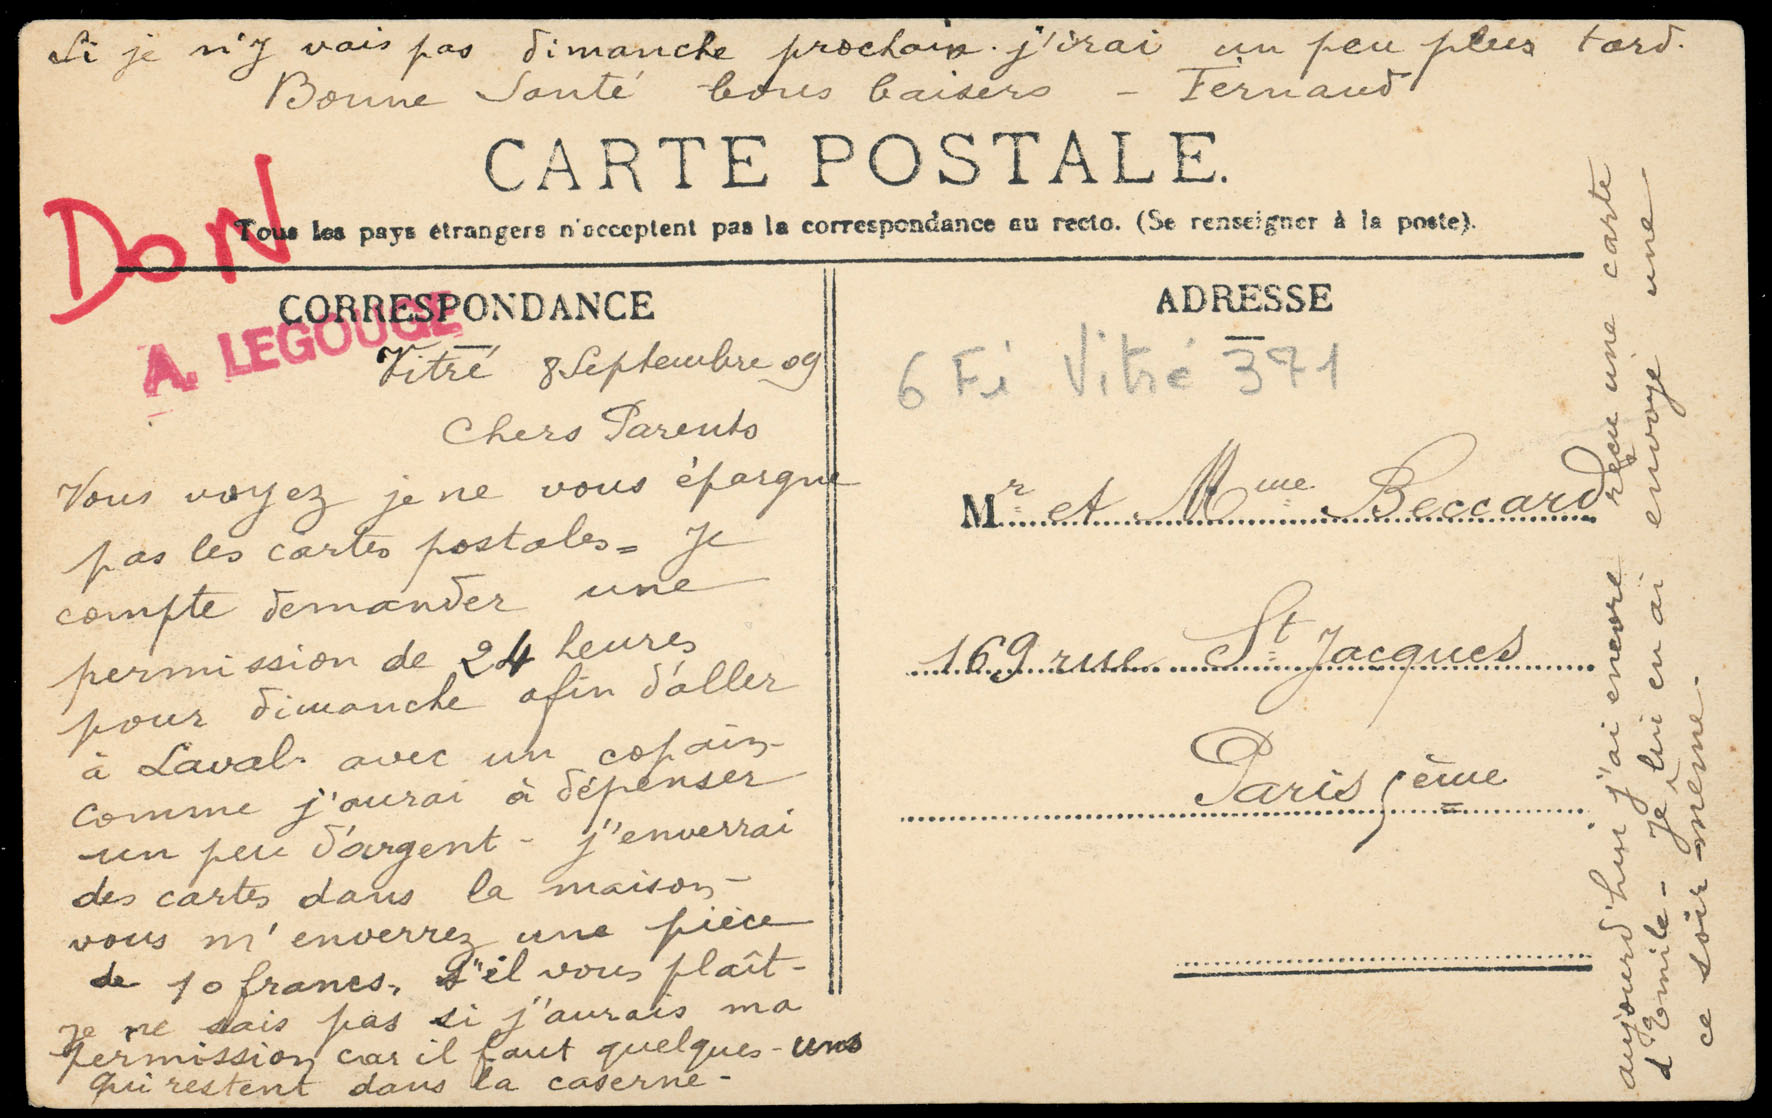 Si je n'y vais pas dimanche prochain. j'irai un peu plus tard.
Bonne Santé bons baisers - Fernand
CARTE POSTALE.
DON
Tous les pays étrangers n'acceptent pas la correspondance au recto. (Se renseigner à la poste).
CORRESPONDANCE
A. LEGOUGE
Vitré 8 Septembre 09
Chers Parents
Vous voyez je ne vous épargne
pas les cartes postales = Je
compte demander une
permission de 24 heures
pour dimanche afin d'aller
à Laval. avec un copain -
comme j'aurai à dépenser
un peu d'argent - j'enverrai
des cartes dans la maison -
vous m'enverrez une pièce
de 10 francs, s'il vous plaît -
Je ne sais pas si j'aurais ma
permission car il faut quelques-uns
qui restent dans la caserne -
ADRESSE
6 Fi Vitré 371
Mr et Mme Beccard
169 rue St Jacques
Paris 5ème
aujourd'hui j'ai encore reçu une carte
d'Emile - Je lui en ai envoyé une
ce soir même.